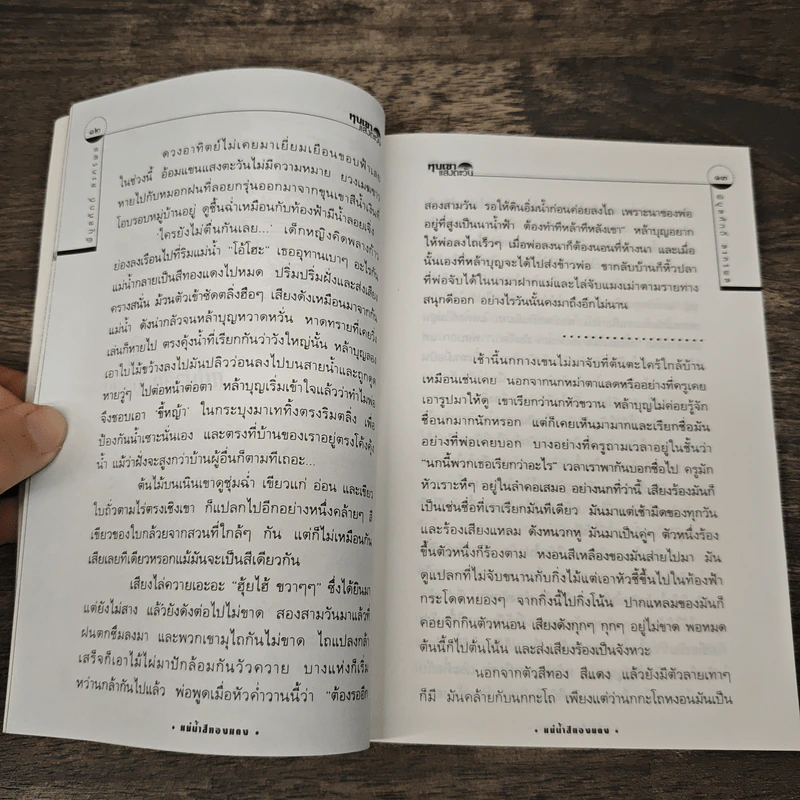 ๑๒
หุบเขา
แสงตะวัน
ดวงอาทิตย์ไม่เคยมาเยี่ยมเยือนขอบฟ้าเลย
ในช่วงนี้ อ้อมแขนแสงตะวันไม่มีความหมาย ยวงเมฆขาว
หายไปกับหมอกฝนที่ลอยกรุ่นออกมาจากขุนเขาสีน้ำเงินที่
โอบรอบหมู่บ้านอยู่ ดูชื้นฉ่ำเหมือนกับท้องฟ้ามีน้ำลอยเอิ่ง
'ใครยังไม่ตื่นกันเลย...' เด็กหญิงคิดพลางก้าว
ย่องลงเรือนไปที่ริมแม่น้ำ "โอ้โฮะ" เธออุทานเบาๆ อะไรกัน
แม่น้ำกลายเป็นสีทองแดงไปหมด ปริ่มปริ่มฝั่งและส่งเสียง
ครางสนั่น ม้วนตัวเข้าซัดตลิ่งฮือๆ เสียงดังเหมือนมาจากก้น
แม่น้ำ ดังน่ากลัวจนหล้าบุญหวาดหวั่น หาดทรายที่เคยวิ่ง
เล่นก็หายไป ตรงคุ้งน้ำที่เรียกกันว่าวังใหญ่นั้น หล้าบุญลอง
เอาใบไม้ขว้างลงไปมันปลิวว่อนลงไปบนสายน้ำและถูกดูด
หายวูๆ ไปต่อหน้าต่อตา หล้าบุญเริ่มเข้าใจแล้วว่าทำไมพ่อ
จึงชอบเอา 'ขี้หญ้า' ในกระบุงมาเททิ้งตรงริมตลิ่ง เพื่อ
ป้องกันน้ำเซาะนั่นเอง และตรงที่บ้านของเราอยู่ตรงโค้งคุ้ง
น้ำ แม้ว่าฝั่งจะสูงกว่าบ้านผู้อื่นก็ตามทีเถอะ...
ต้นไม้บนเนินเขาดูชุ่มฉ่ำ เขียวแก่ อ่อน และเขียว
ใบถั่วตามไร่ตรงเชิงเขา ก็แปลกไปอีกอย่างหนึ่งคล้ายๆ สี
เขียวของใบกล้วยจากสวนที่ใกล้ๆ กัน แต่ก็ไม่เหมือนกัน
เสียเลยทีเดียวหรอกแม้มันจะเป็นสีเดียวกัน
เสียงไล่ควายเอะอะ "ฮุ้ยไฮ้ ขวาๆๆ" ซึ่งได้ยินมา
แต่ยังไม่สาง แล้วยังดังต่อไปไม่ขาด สองสามวันมาแล้วที่
ฝนตกซึมลงมา และพวกเขามุไถกันไม่ขาด ไถแปลงกล้า
เสร็จก็เอาไม้ไผ่มาปักล้อมกันวัวควาย บางแห่งก็เริ่ม
หว่านกล้ากันไปแล้ว พ่อพูดเมื่อหัวค่ำวานนี้ว่า "ต้องรออีก
• แม่น้ำสีทองแดง •
หุบเขา
แสงตะวัน
๑๓
สองสามวัน รอให้ดินอิ่มน้ำก่อนค่อยลงไถ เพราะนาของพ่อ
อยู่ที่สูงเป็นนาน้ำฟ้า ต้องทำทีหล้าทีหลังเขา" หล้าบุญอยาก
ให้พ่อลงไถเร็วๆ เมื่อพ่อลงนาก็ต้องนอนที่ห้างนา และเมื่อ
นั้นเองที่หล้าบุญจะได้ไปส่งข้าวพ่อ ขากลับบ้านก็หิ้วปลา
ที่พ่อจับได้ในนามาฝากแม่และไล่จับแมงเม่าตามรายทาง
สนุกดีออก อย่างไรวันนั้นคงมาถึงอีกไม่นาน
........................
เช้านี้นกกางเขนไม่มาจับที่ต้นตะไคร้ใกล้บ้าน
เหมือนเช่นเคย นอกจากนกหม่าตาแลดหรืออย่างที่ครูเคย
เอารูปมาให้ดู เขาเรียกว่านกหัวขวาน หล้าบุญไม่ค่อยรู้จัก
ชื่อนกมากนักหรอก แต่ก็เคยเห็นมามากและเรียกชื่อมัน
อย่างที่พ่อเคยบอก บางอย่างที่ครูถามเวลาอยู่ในชั้นว่า
"นกนี้พวกเธอเรียกว่าอะไร" เวลาเราพากันบอกชื่อไป ครูมัก
หัวเราะหึๆ อยู่ในลำคอเสมอ อย่างนกที่ว่านี้ เสียงร้องมันก็
เป็นเช่นชื่อที่เราเรียกมันทีเดียว มันมาแต่เช้ามืดของทุกวัน
และร้องเสียงแหลม ดังหนวกหู มันมาเป็นคู่ๆ ตัวหนึ่งร้อง
ขึ้นตัวหนึ่งก็ร้องตาม หงอนสีเหลืองของมันส่ายไปมา มัน
ดูแปลกที่ไม่จับขนานกับกิ่งไม้แต่เอาหัวชี้ขึ้นไปในท้องฟ้า
กระโดดหยองๆ จากกิ่งนี้ไปกิ่งโน้น ปากแหลมของมันก็
คอยจิกกินตัวหนอน เสียงดังกุกๆ กุกๆ อยู่ไม่ขาด พอหมด
ต้นนี้ก็ไปต้นโน้น และส่งเสียงร้องเป็นจังหวะ
นอกจากตัวสีทอง สีแดง แล้วยังมีตัวลายเทาๆ
ก็มี มันคล้ายกับนกกะโถ เพียงแต่ว่านกกะโถหงอนมันเป็น
• แม่น้ำสีทองแดง •